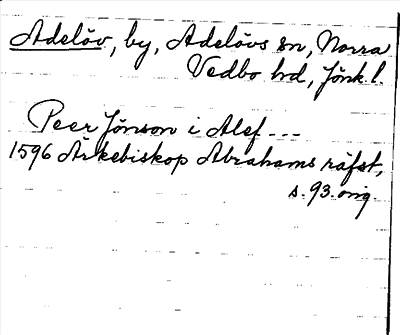 Adelöv, by, Adelövs sn, Norra
Vedbo hd, Jönk. l.
Peer Jönson i Alef - - -
1596 Ärkebiskop Abrahams räfst,
s. 93. orig.